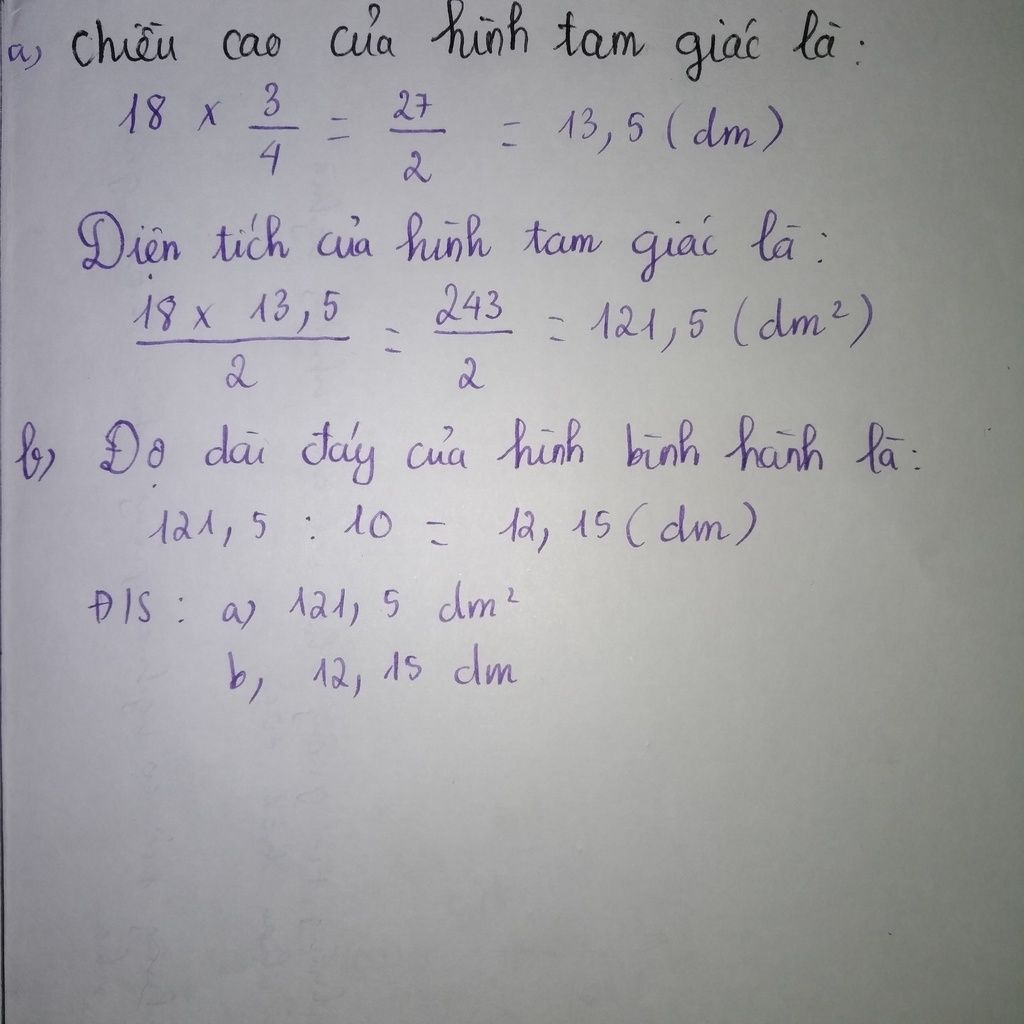 a, Chiều cao của hình tam giác là:
18 x 3/4 = 27/2 = 13,5 (dm)
Diện tích của hình tam giác là:
18 x 13,5 / 2 = 243/2 = 121,5 (dm²)
b, Độ dài đáy của hình bình hành là:
121,5 : 10 = 12,15 (dm)
Đ/S: a, 121,5 dm²
b, 12,15 dm